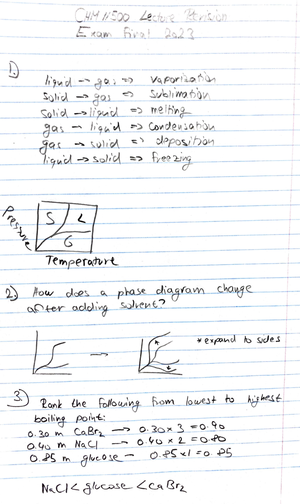 CHM 11500 Lecture Revision
Exam Final 2023
1.)
liquid → gas => vaporization
solid → gas => sublimation
solid → liquid => melting
gas → liquid => condensation
gas → solid => deposition
liquid → solid => freezing
Pressure
S L
G
Temperature
2.) How does a phase diagram change
after adding solvent?
*expand to sides
3.) Rank the following from lowest to highest
boiling point:
0.30 m CaBr2 → 0.30 x 3 = 0.90
0.40 m NaCl → 0.40 x 2 = 0.80
0.85 m glucose - 0.85 x 1 = 0.85
NaCl < glucose < CaBr2